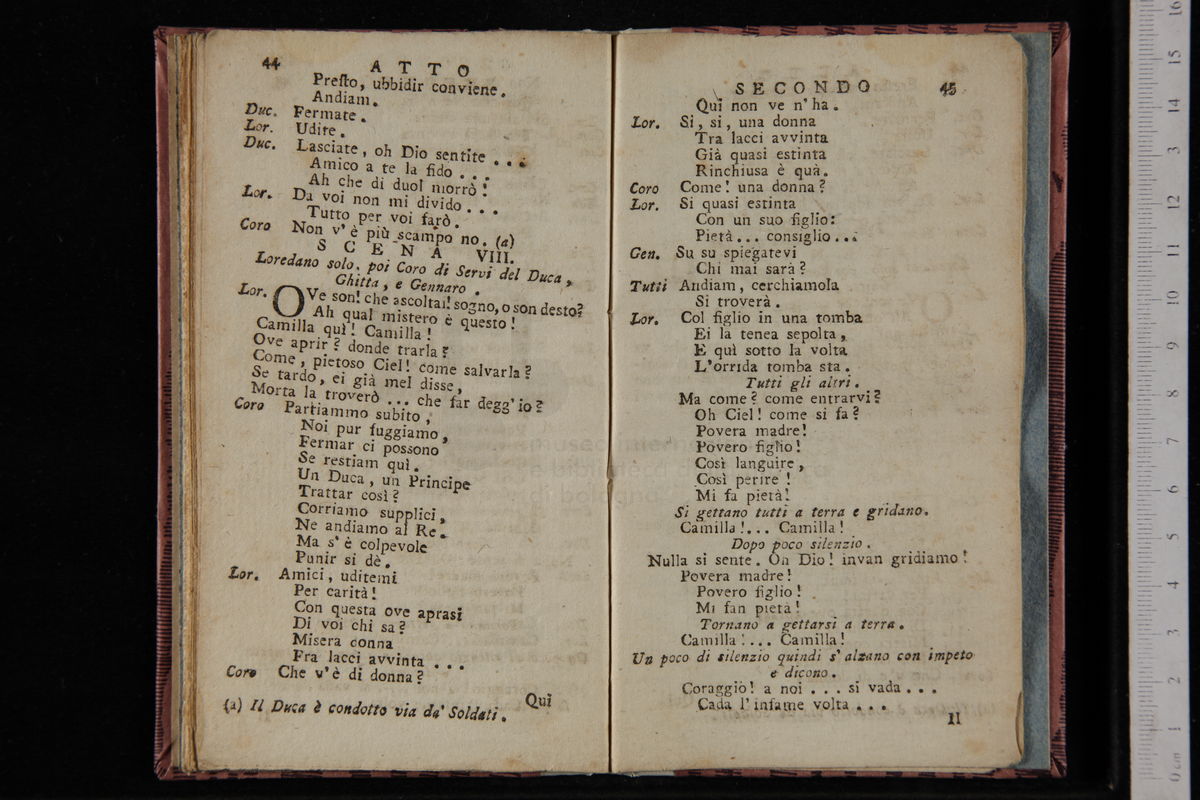 44
ATTO
Presto, ubbidir conviene.
Andiam.
Duc. Fermate.
Lor. Udite.
Duc. Lasciate, oh Dio sentite ...
Amico a te la fido ...
Ah che di duol morrò!
Lor. Da voi non mi divido ...
Tutto per voi farò.
Coro Non v'è più scampo no. (a)
SCENA VIII.
Loredano solo, poi Coro di Servi del Duca,
Ghitta, e Gennaro.
Lor. OVe son! che ascoltai! sogno, o son desto?
Ah qual mistero è questo!
Camilla quì! Camilla!
Ove aprir? donde trarla?
Come, pietoso Ciel! come salvarla?
Se tardo, ei già mel disse,
Morta la troverò ... che far degg'io?
Coro Partiammo subito,
Noi pur fuggiamo,
Fermar ci possono
Se restiam quì.
Un Duca, un Principe
Trattar così?
Corriamo supplici,
Ne andiamo al Re.
Ma s'è colpevole
Punir si dè.
Lor. Amici, uditemi
Per carità!
Con questa ove aprasi
Di voi chi sa?
Misera donna
Fra lacci avvinta ...
Coro Che v'è di donna?
Quì
(a) Il Duca è condotto via da' Soldati.
SECONDO
45
Quì non ve n'ha.
Lor. Si, si, una donna
Tra lacci avvinta
Già quasi estinta
Rinchiusa è quà.
Coro Come! una donna?
Lor. Si quasi estinta
Con un suo figlio:
Pietà... consiglio...
Gen. Su su spiegatevi
Chi mai sarà?
Tutti Andiam, cerchiamola
Si troverà.
Lor. Col figlio in una tomba
Ei la tenea sepolta,
E quì sotto la volta
L'orrida tomba sta.
Tutti gli altri.
Ma come? come entrarvi?
Oh Ciel! come si fa?
Povera madre!
Povero figlio!
Così languire,
Così perire!
Mi fa pietà!
Si gettano tutti a terra e gridano.
Camilla!... Camilla!
Dopo poco silenzio.
Nulla si sente. Oh Dio! invan gridiamo!
Povera madre!
Povero figlio!
Mi fan pietà!
Tornano a gettarsi a terra.
Camilla!... Camilla!
Un poco di silenzio quindi s'alzano con impeto
e dicono.
Coraggio! a noi ... si vada ...
Cada l'infame volta ...
Il